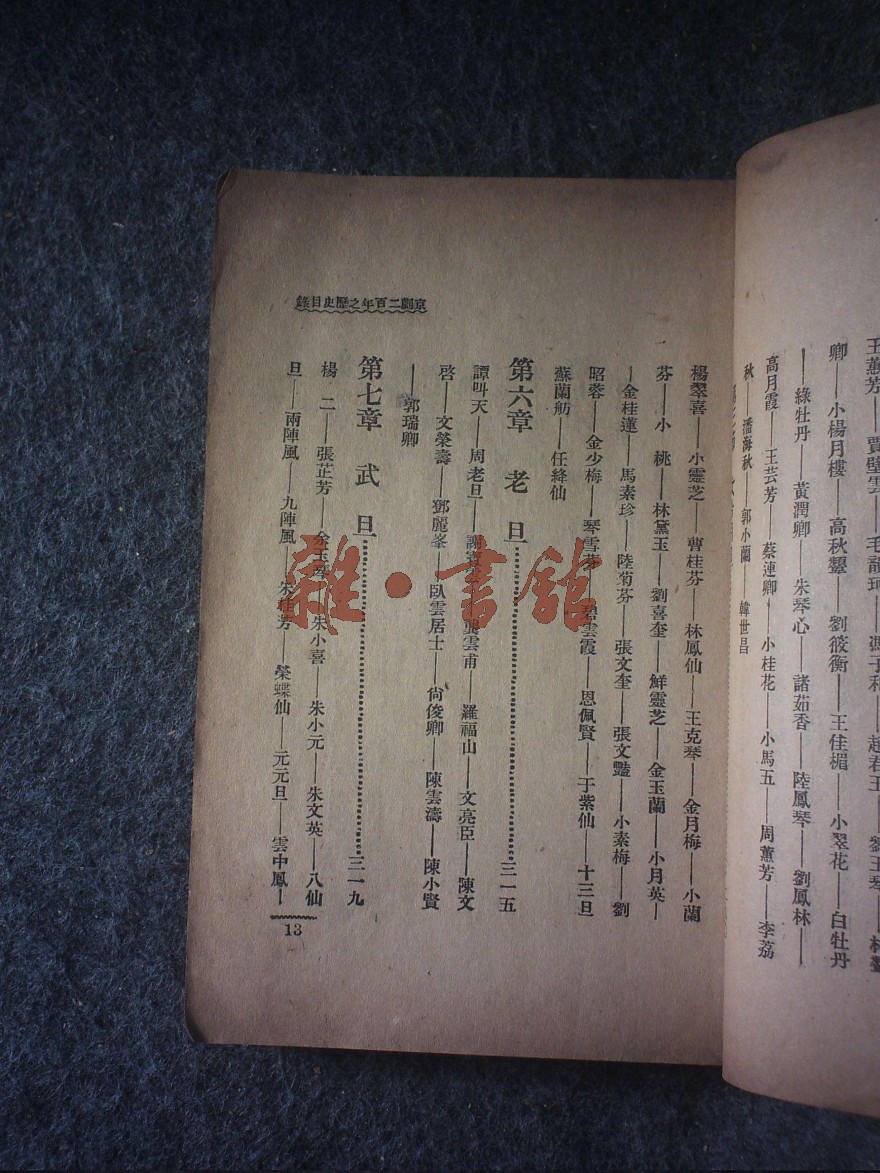 王蕙芳——賈璧雲——毛韻珂——馮子和——趙君玉——劉玉琴——林顰
卿——小楊月樓——高秋顰——劉筱衡——王佳楣——小翠花——白牡丹
——綠牡丹——黃潤卿——朱琴心——諸茹香——陸鳳琴——劉鳳林——
高月霞——王芸芳——蔡連卿——小桂花——小馬五——周蕙芳——李荔
秋——潘海秋——郭小蘭——韓世昌
楊翠喜——小靈芝——曹桂芬——林鳳仙——王克琴——金月梅——小蘭
芬——小 桃——林黛玉——劉喜奎——鮮靈芝——金玉蘭——小月英—
—金桂蓮——馬素珍——陸菊芬——張文奎——張文豔——小素梅——劉
昭蓉——金少梅——琴雪芬——碧雲霞——恩佩賢——于紫仙——十三旦
蘇蘭舫——任絳仙
第六章 老 旦………三一五
譚叫天——周老旦——謝寶——龔雲甫——羅福山——文亮臣——陳文
啓——文榮壽——鄧麗峯——臥雲居士——尙俊卿——陳雲濤——陳小賢
——郭瑞卿
第七章 武 旦………三一九
楊 二——張芷芳——余玉琴——朱小喜——朱小元——朱文英——八仙
旦——兩陣風——九陣風——朱桂芳——榮蝶仙——元元旦——雲中鳳—
京劇二百年之歷史目錄
13
雜·書館